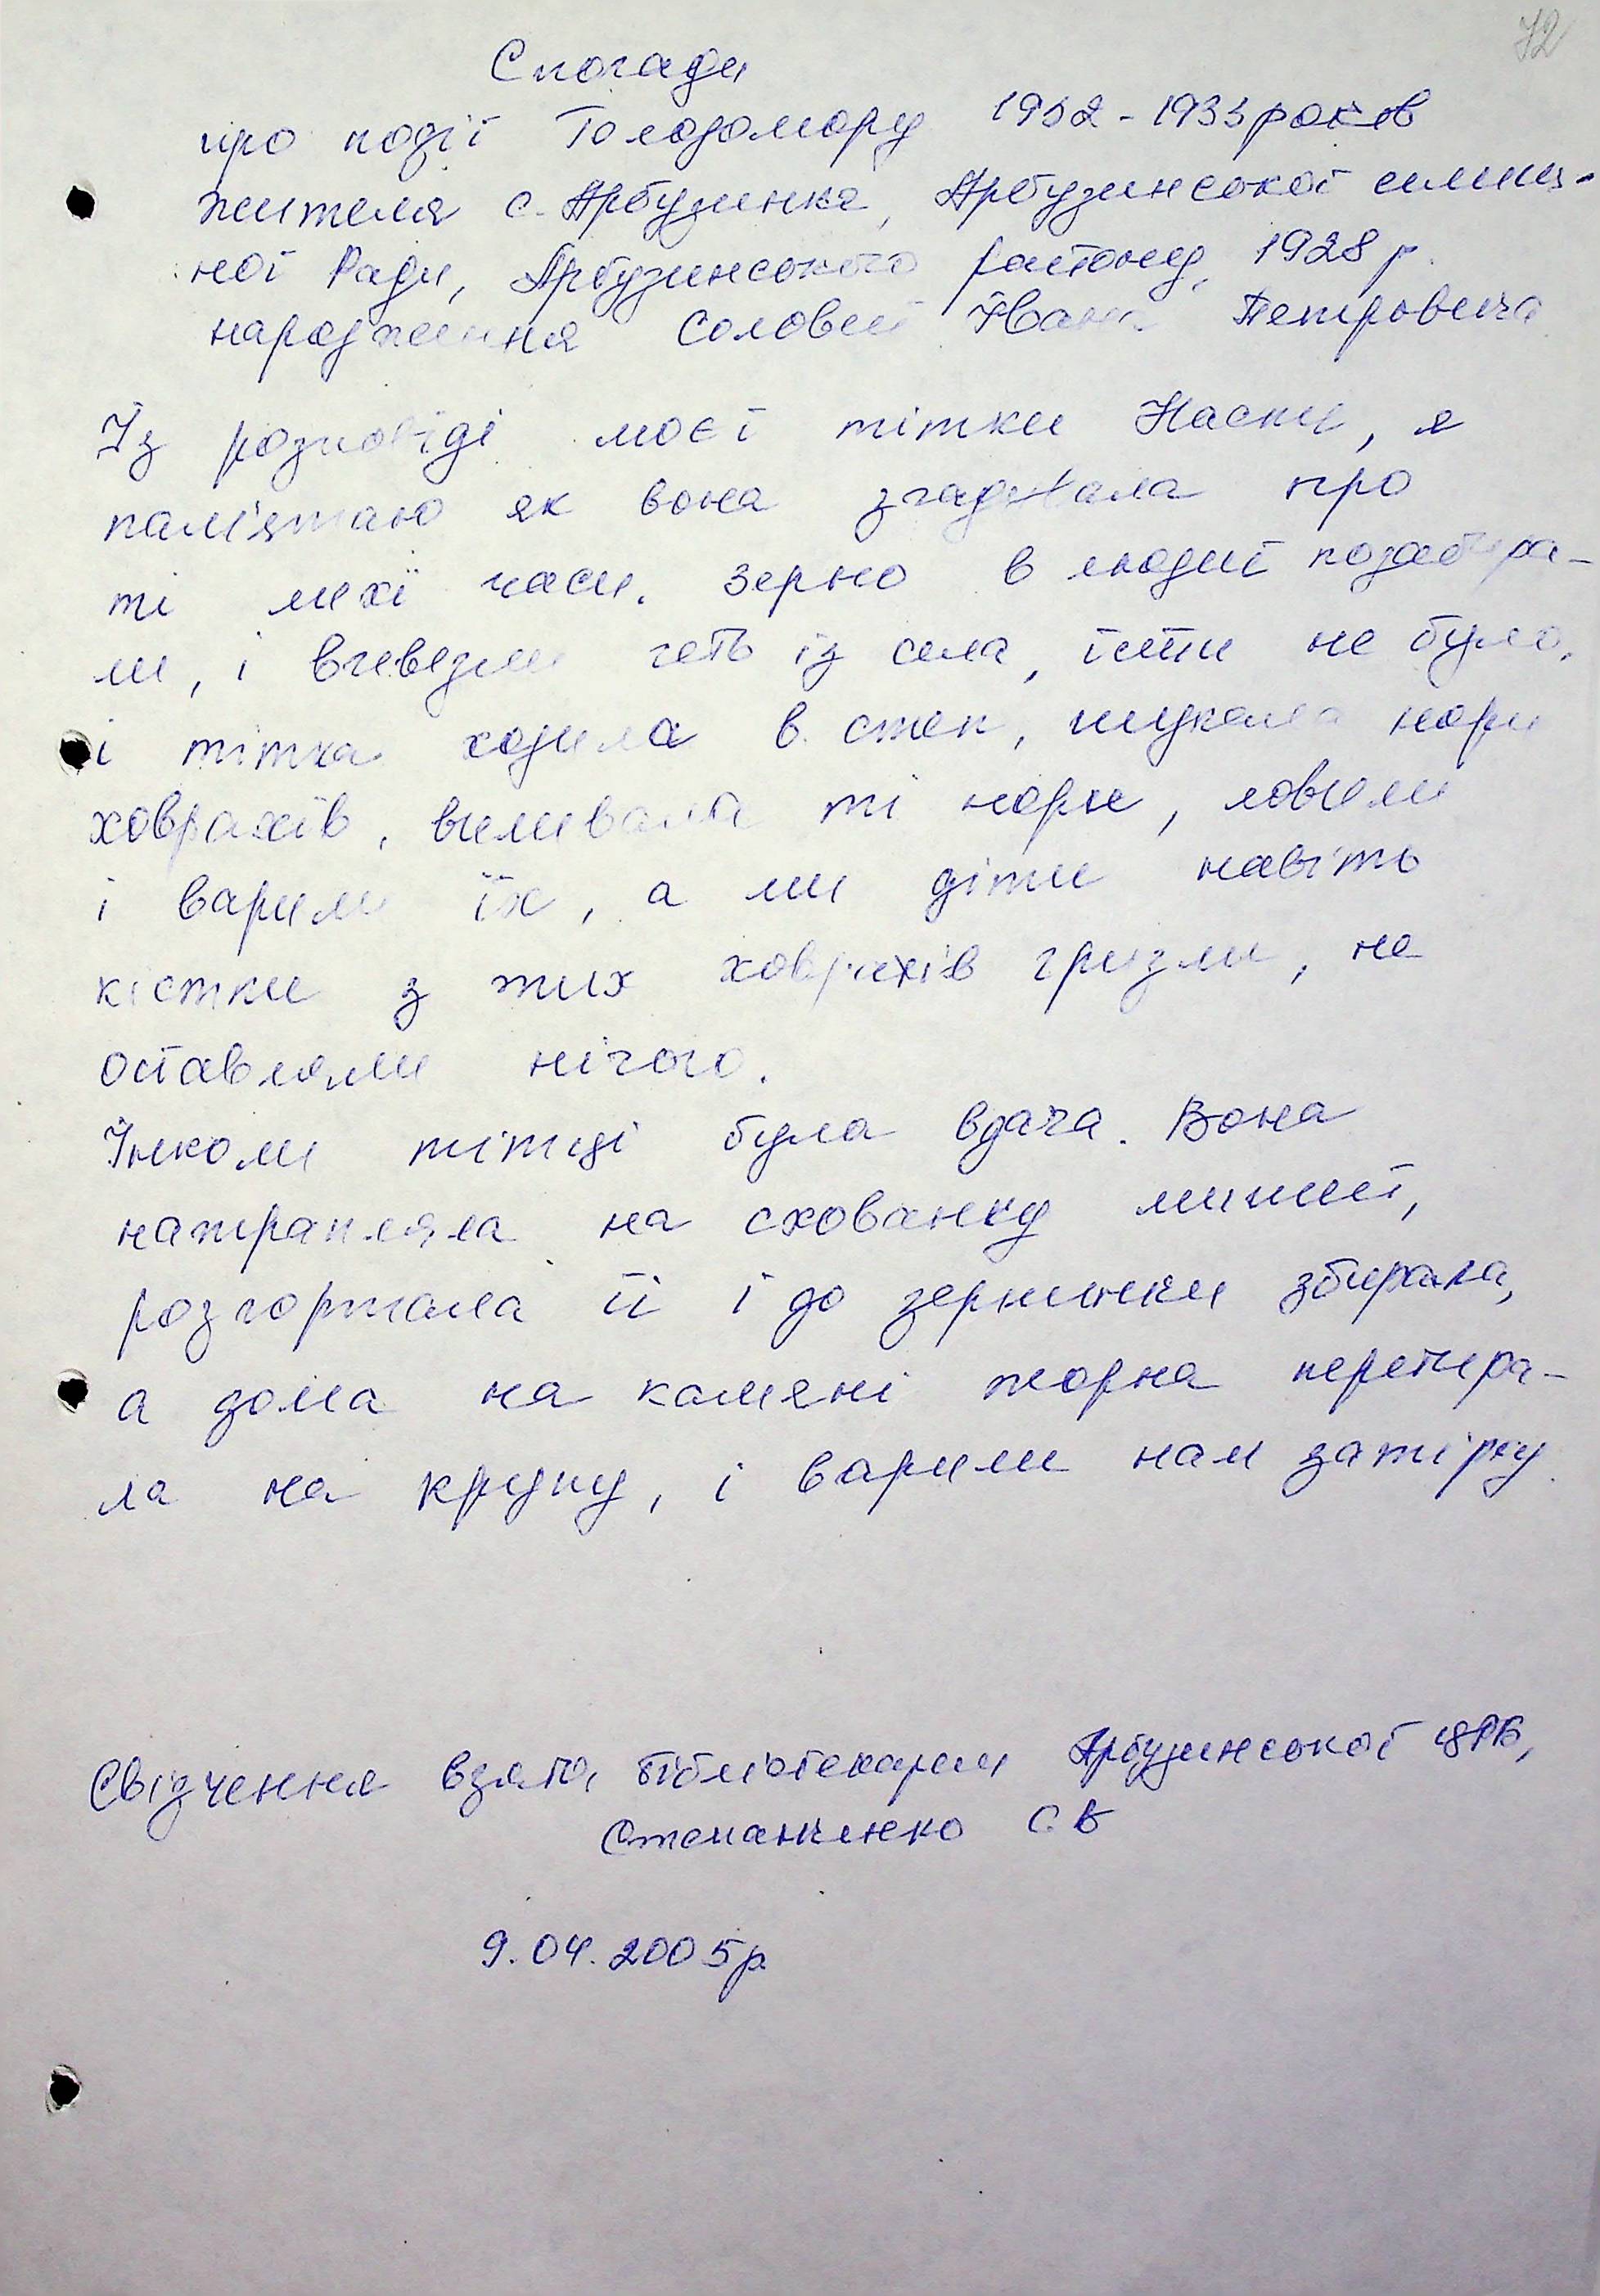 72
Спогади
про події Голодомору 1932-1933 років
жителя с. Арбузинка, Арбузинської селищ-
ної Ради, Арбузинського району, 1928 р.
народження Соловей Івана Петровича
Із розповіді моєї тітки Наски, я
пам'ятаю як вона згадувала про
ті лихі часи. Зерно в людей позабира-
ли, і вивезли геть із села, їсти не було,
і тітка ходила в степ, шукала нори
ховрахів, виливала ті нори, ловили
і варили їх, а ми діти навіть
кістки з тих ховрахів гризли, не
оставляли нічого.
Інколи тітці була вдача. Вона
натрапляла на схованку мишей,
розгортала її і до зернинки збирала,
а дома на камяні жорна перетира-
ла на крупу, і варили нам затірку.
Свідчення взято, бібліотекарем Арбузинської ЦРБ,
С В
9.04.2005р.